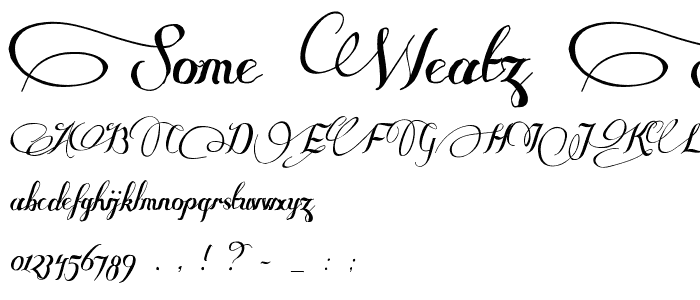 Some Weatz S
ABCDEFGHIJKL
abcdefghijklmnopqrstuvwxyz
0123456789 . , ! ? ~ _ : ;